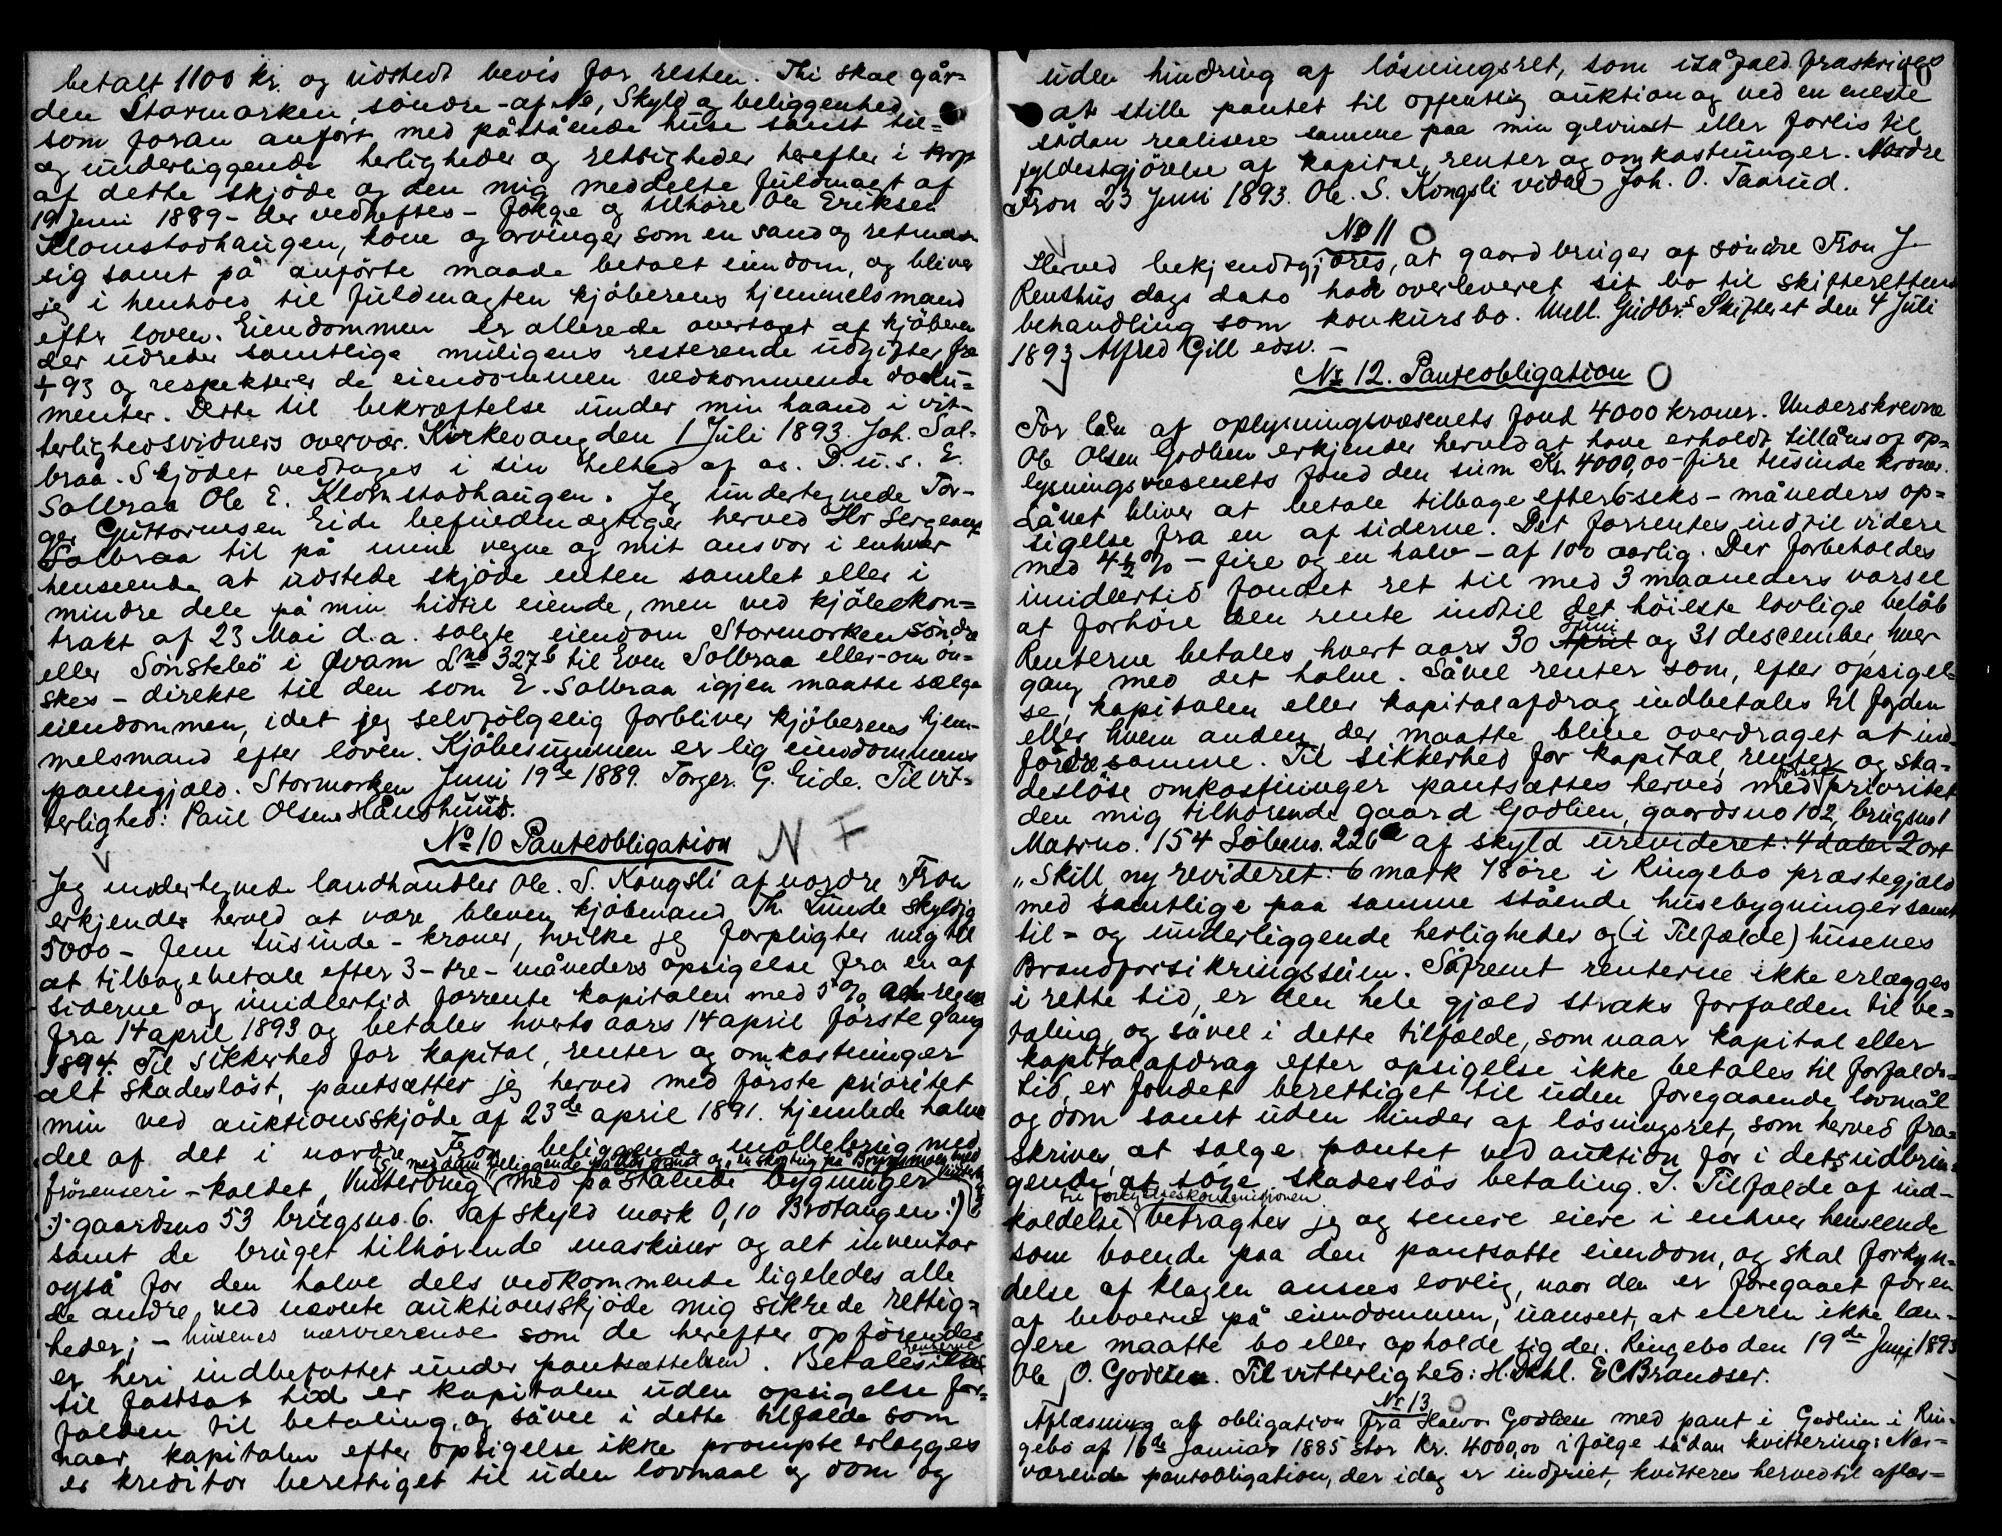 betalt 1100 kr. og udstedt bevis for resten. Thi skal går=
den Stormorken, söndre - af No, Skyld og beliggenhed
som foran anført med påstående huse samt til=
og underliggende herligheder og rettigheder herefter i krap
af dette skjöde og den mig meddelte fuldmagt af
19 Juni 1889 - der vedheftes - følge og tilhøre Ole Eriksen
Klomstadhaugen, kone og arvinger som en sand og retmæs
sig samt på anførte maade betalt eiendom, og bliver
jeg i henhold til fuldmagten kjøberens hjemmelsmand
efter loven. Eiendommen er allerede overtaget af kjøberen
der udreder samtlige muligens resterende udgifter fra
93 og respekterer de eiendommen vedkommende doku=
menter. Dette til bekræftelse under min haand i vit-
terlighedsvidners overvær. Kirkevang den 1 Juli 1893. Joh. Sol-
braa. Skjødet vedtages i sin helhed af os. D.u.s. E.
Solbraa Ole E. Klomstadhaugen. Jeg undertegnede Tor-
ger Guttormsen Eide befuldmægtiger herved Hr Sergeant
Solbraa til på mine vegne og mit ansvar i enhver
henseende at udstede skjøde enten samlet eller i
mindre dele på min hidtil eiende, men ved kjøbekon=
trakt af 23 Mai d.a. solgte eiendom Stormorken söndre
eller Sønstebö i Qvam Lno 327b til Even Solbraa eller - om øn-
skes - direkte til den som E. Solbraa igjen maatte sælge
eiendommen, idet jeg selvfølgelig forbliver kjøberens hjem-
melsmand efter loven. Kjøbesummen er lig eiendommens
pantegjæld. Stormorken Juni 19de 1889. Torger G. Eide. Til vit-
terlighed: Paul Olsen
No 10 Panteobligation N. F
Jeg undertegnede landhandler Ole. S. Kongsli af nordre Fron
erkjender herved at være bleven kjøbmand Th. Lunde skyldig
5000 - fem tusinde - kroner, hvilke jeg forpligter mig til
at tilbagebetale efter 3 - tre - måneders opsigelse fra en af
siderne og imidlertid forrente kapitalen med 5% regnet
fra 14 april 1893 og betales hverts aars 14 april første gang
1894. Til sikkerhed for kapital, renter og omkostninger
alt skadesløst, pantsætter jeg herved med første prioritet
min ved auktionsskjøde af 23de april 1891. hjemlede halve
del af det i nordre Fron beliggende møllebrug med
frøsenseri - kaldet med påstående bygninger
:)- gaardsno 53 brugsno. 6. af skyld mark 0,10 Brotangen :)
samt de bruget tilhørende maskiner og alt inventar
også for den halve dels vedkommende ligeledes alle
de andre ved nævnte auktionsskjøde mig sikrede rettig=
heder; - husenes nærværende som de herefter opførendes
er heri indbefattet under pantsættelsen. Betales renterne ikke
til fastsat tid er kapitalen uden opsigelse for=
falden til betaling, og såvel i dette tilfælde som
naar kapitalen efter opsigelse ikke prompte erlægges
er kreditor berettiget til uden lovmaal og dom og
10
uden hindring af løsningsret, som isåfald fraskrives
at stille pantet til offentlig auktion og ved en eneste
sådan realisere samme paa min gevinst eller forlis til
fyldestgjørelse af kapital, renter og omkostninger. Nordre
Fron 23 Juni 1893. Ole. S. Kongsli vidal Joh. O. Taarud.
No 11
Herved bekjendtgjøres, at gaardbruger af söndre Fron J.
Rusthus dags dato har overleveret sit bo til skifterettens
behandling som konkursbo. Mell. Gudbr.s Skifteret den 4 Juli
1893 Alfred Gill edsv. -
No 12. Panteobligation
For lån af oplysningsvæsenets fond 4000 kroner. Underskrevne
Ole Olsen Godlien erkjender herved at have erholdt tillåns af op=
lysningsvæsenets fond den sum Kr. 4000,00 - fire tusinde kroner.
Lånet bliver at betale tilbage efter 6 seks - måneders op=
sigelse fra en af siderne. Det forrentes indtil videre
med 4 1/2 % - fire og en halv - af 100 aarlig. Der forbeholdes
imidlertid fondet ret til med 3 maaneders varsel
at forhøie den rente indtil det høieste lovlige beløb
Renterne betales hvert aars 30 April Juni og 31 descember, hver
gang med det halve. Såvel renter som, efter opsigel-
se, kapitalen eller kapitalafdrag indbetales til fogden
eller hvem anden der maatte blive overdraget at ind-
fordre samme. Til sikkerhed for kapital, renter og ska=
desløse omkostninger pantsættes herved med første prioritet
den mig tilhørende gaard Godlien, gaardsno 102, brugsno 1
Matrno. 154 Løbeno. 226a af skyld urevideret: 4 daler 2 ort
„ Skill, ny revideret: 6 mark 78 øre i Ringebo præstegjæld
med samtlige paa samme stående husebygninger samt
til= og underliggende herligheder og (i Tilfælde) husenes
Brandforsikringssum. Såfremt renterne ikke erlægges
i rette tid, er den hele gjæld straks forfalden til be=
taling, og såvel i dette tilfælde, som naar kapital eller
kapitalafdrag efter opsigelse ikke betales til forfalds=
tid, er fondet berettiget til uden foregaaende lovmål
og dom samt uden hinder af løsningsret, som herved fra=
skrives, at sælge pantet ved auktion for i dets udbrin=
gende at søge skadesløs betaling. I Tilfælde af ind-
kaldelse til forligelseskommisjonen betragtes jeg og senere eiere i enhver henseende
som boende paa den pantsatte eiendom, og skal forkyn=
delse af klagen ansees lovlig, naar den er foregaaet for en
af beboerne på eiendommen, uanseet, at eieren ikke læn-
gere maatte bo eller opholde sig der. Ringebo den 19de Juni 1893
Ole O. Godlien. Til vitterlighed: H. Dahl. E C Brandser.
No 13
Aflæsning af obligation fra Halvor Godlien med pant i Godlien i Rin-
gebo af 16de Januar 1885 stor Kr. 4000,00 ifølge sådan kvittering: Nær-
værende pantobligation, der idag er indfriet, kvitteres herved til aflæs=